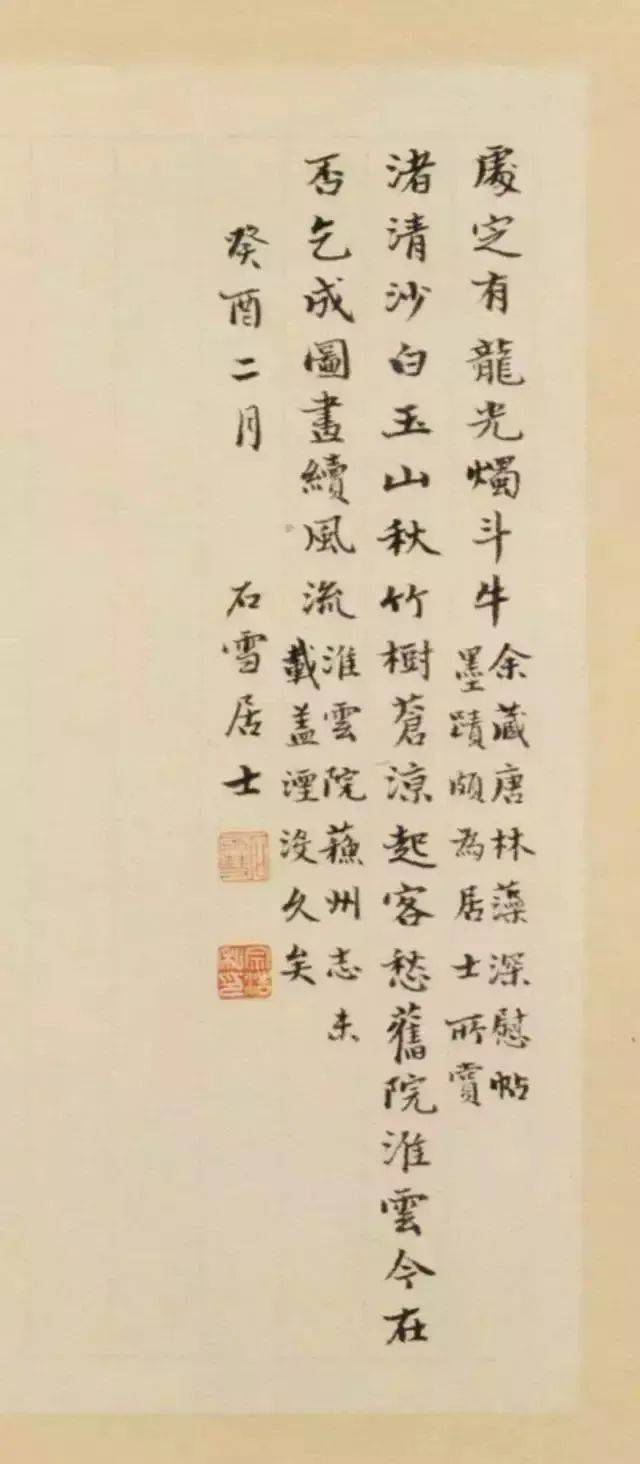 處定有龍光燭斗牛余藏唐林藻深慰帖
墨蹟頗為居士所賞
渚清沙白玉山秋竹樹蒼涼起客愁舊院淮雲今在
否乞成圖畫續風流淮雲院蘇州志未
載蓋湮沒久矣
癸酉二月 石雪居士